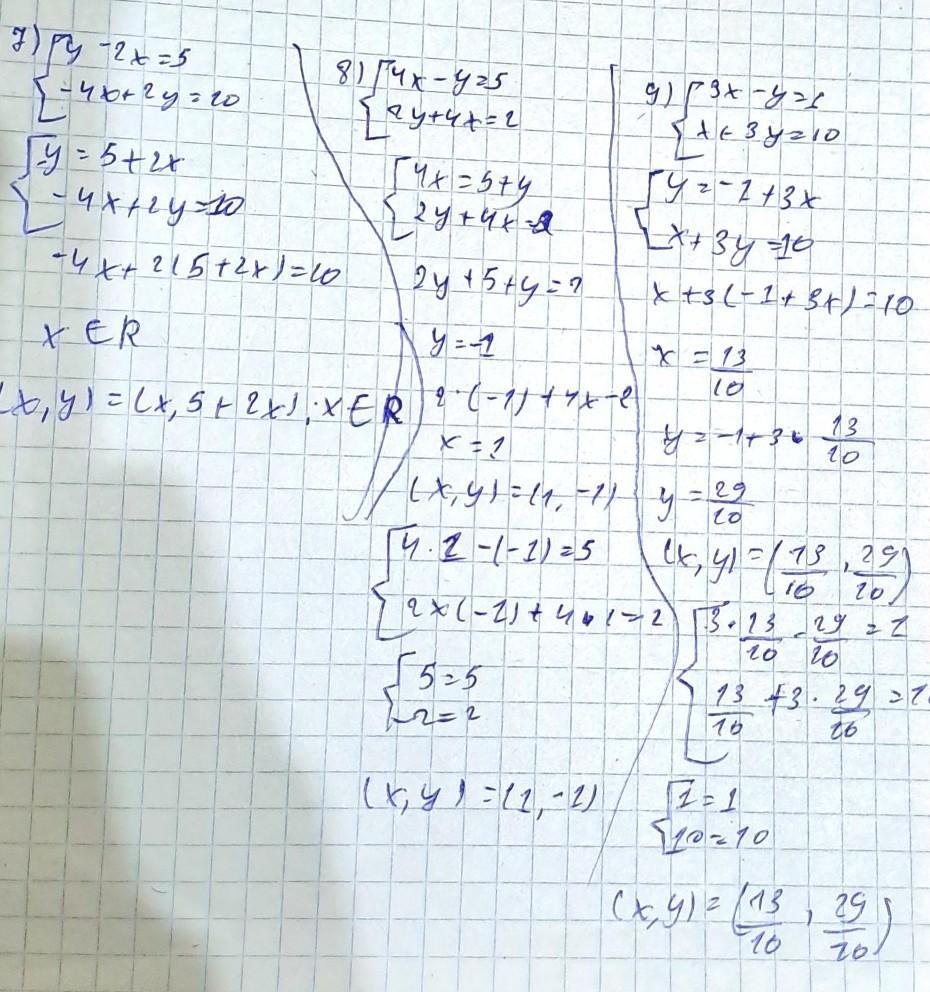 7) { y - 2x = 5
-4x + 2y = 10
{ y = 5 + 2x
-4x + 2y = 10
-4x + 2(5 + 2x) = 10
x ∈ R
(x, y) = (x, 5 + 2x), x ∈ R
8) { 4x - y = 5
2y + 4x = 2
{ 4x = 5 + y
2y + 4x = 2
2y + 5 + y = 2
y = -1
2 · (-1) + 4x = 2
x = 1
(x, y) = (1, -1)
{ 4 · 1 - (-1) = 5
2 x (-1) + 4 · 1 = 2
{ 5 = 5
2 = 2
(x, y) = (1, -1)
9) { 3x - y = 1
x + 3y = 10
{ y = -1 + 3x
x + 3y = 10
x + 3(-1 + 3x) = 10
x = 13/10
y = -1 + 3 · 13/10
y = 29/10
(x, y) = (13/10, 29/10)
{ 3 · 13/10 - 29/10 = 1
13/10 + 3 · 29/10 = 1
{ 1 = 1
10 = 10
(x, y) = (13/10, 29/10)